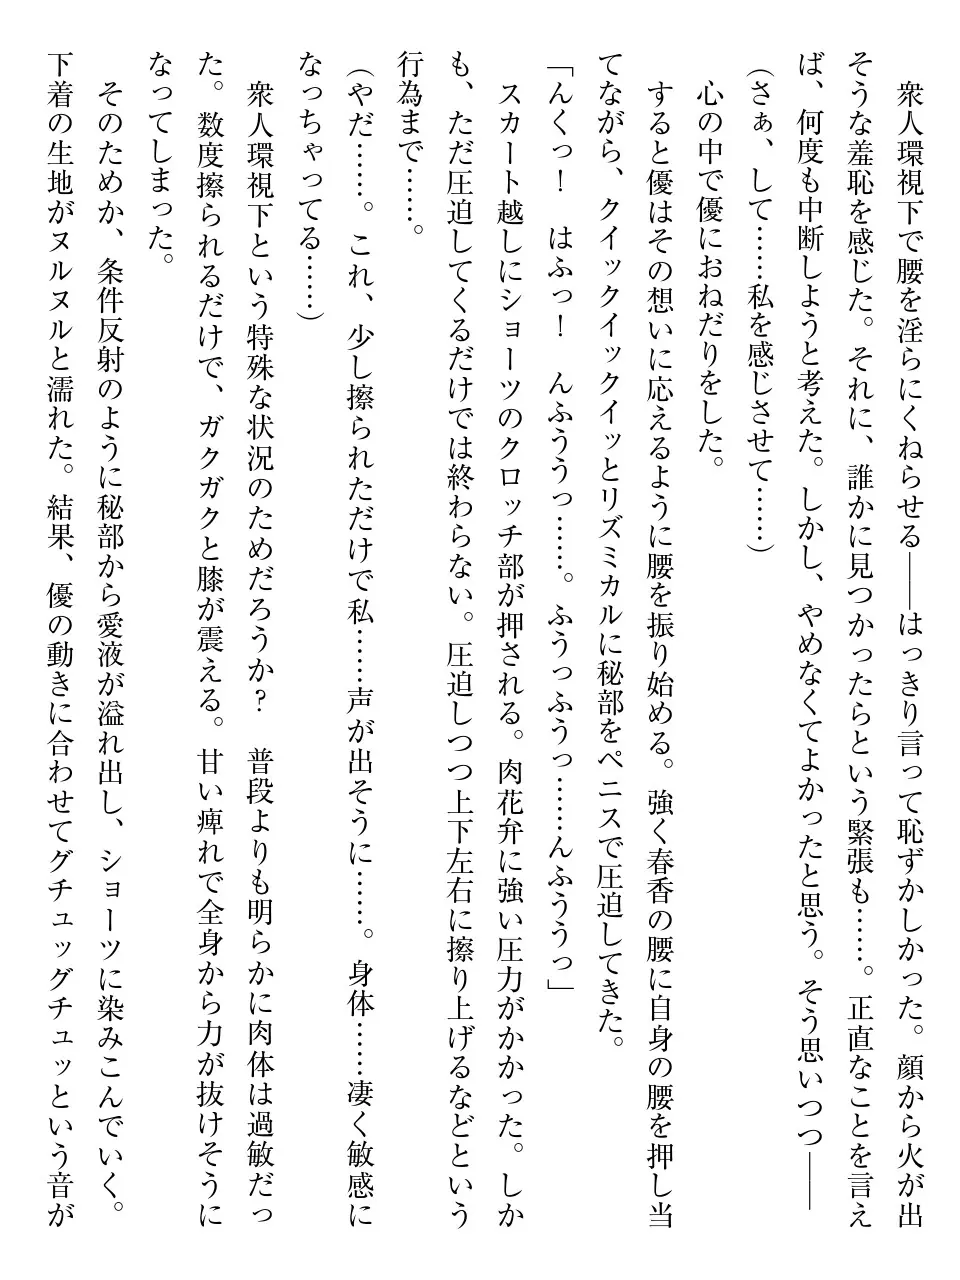 衆人環視下で腰を淫らにくねらせる――はっきり言って恥ずかしかった。顔から火が出
そうな羞恥を感じた。それに、誰かに見つかったらという緊張も……。正直なことを言え
ば、何度も中断しようと考えた。しかし、やめなくてよかったと思う。そう思いつつ――
（さぁ、して……私を感じさせて……）
　心の中で優におねだりをした。
　すると優はその想いに応えるように腰を振り始める。強く春香の腰に自身の腰を押し当
てながら、クイックイックイッとリズミカルに秘部をペニスで圧迫してきた。
「んくっ！　はふっ！　んふううっ……。ふうっふうっ……んふううっ」
　スカート越しにショーツのクロッチ部が押される。肉花弁に強い圧力がかかった。しか
も、ただ圧迫してくるだけでは終わらない。圧迫しつつ上下左右に擦り上げるなどという
行為まで……。
（やだ……。これ、少し擦られただけで私……声が出そうに……。身体……凄く敏感に
なっちゃってる……）
　衆人環視下という特殊な状況のためだろうか？　普段よりも明らかに肉体は過敏だっ
た。数度擦られるだけで、ガクガクと膝が震える。甘い痺れで全身から力が抜けそうに
なってしまった。
　そのためか、条件反射のように秘部から愛液が溢れ出し、ショーツに染みこんでいく。
下着の生地がヌルヌルと濡れた。結果、優の動きに合わせてグチュッグチュッという音が